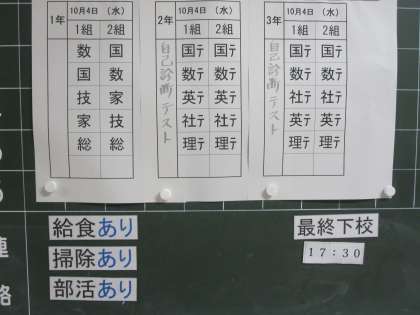 1年 10月4日 (水)
1組 2組
数 国
国 数
技 家
家 技
総 総
2年 10月4日 (水)
1組 2組
自己診断テスト
国テ 国テ
数テ 数テ
英テ 英テ
社テ 社テ
理テ 理テ
3年 10月4日 (水)
1組 2組
自己診断テスト
国テ 国テ
数テ 数テ
社テ 社テ
英テ 英テ
理テ 理テ
連
絡
給食あり
掃除あり
部活あり
最終下校
17:30